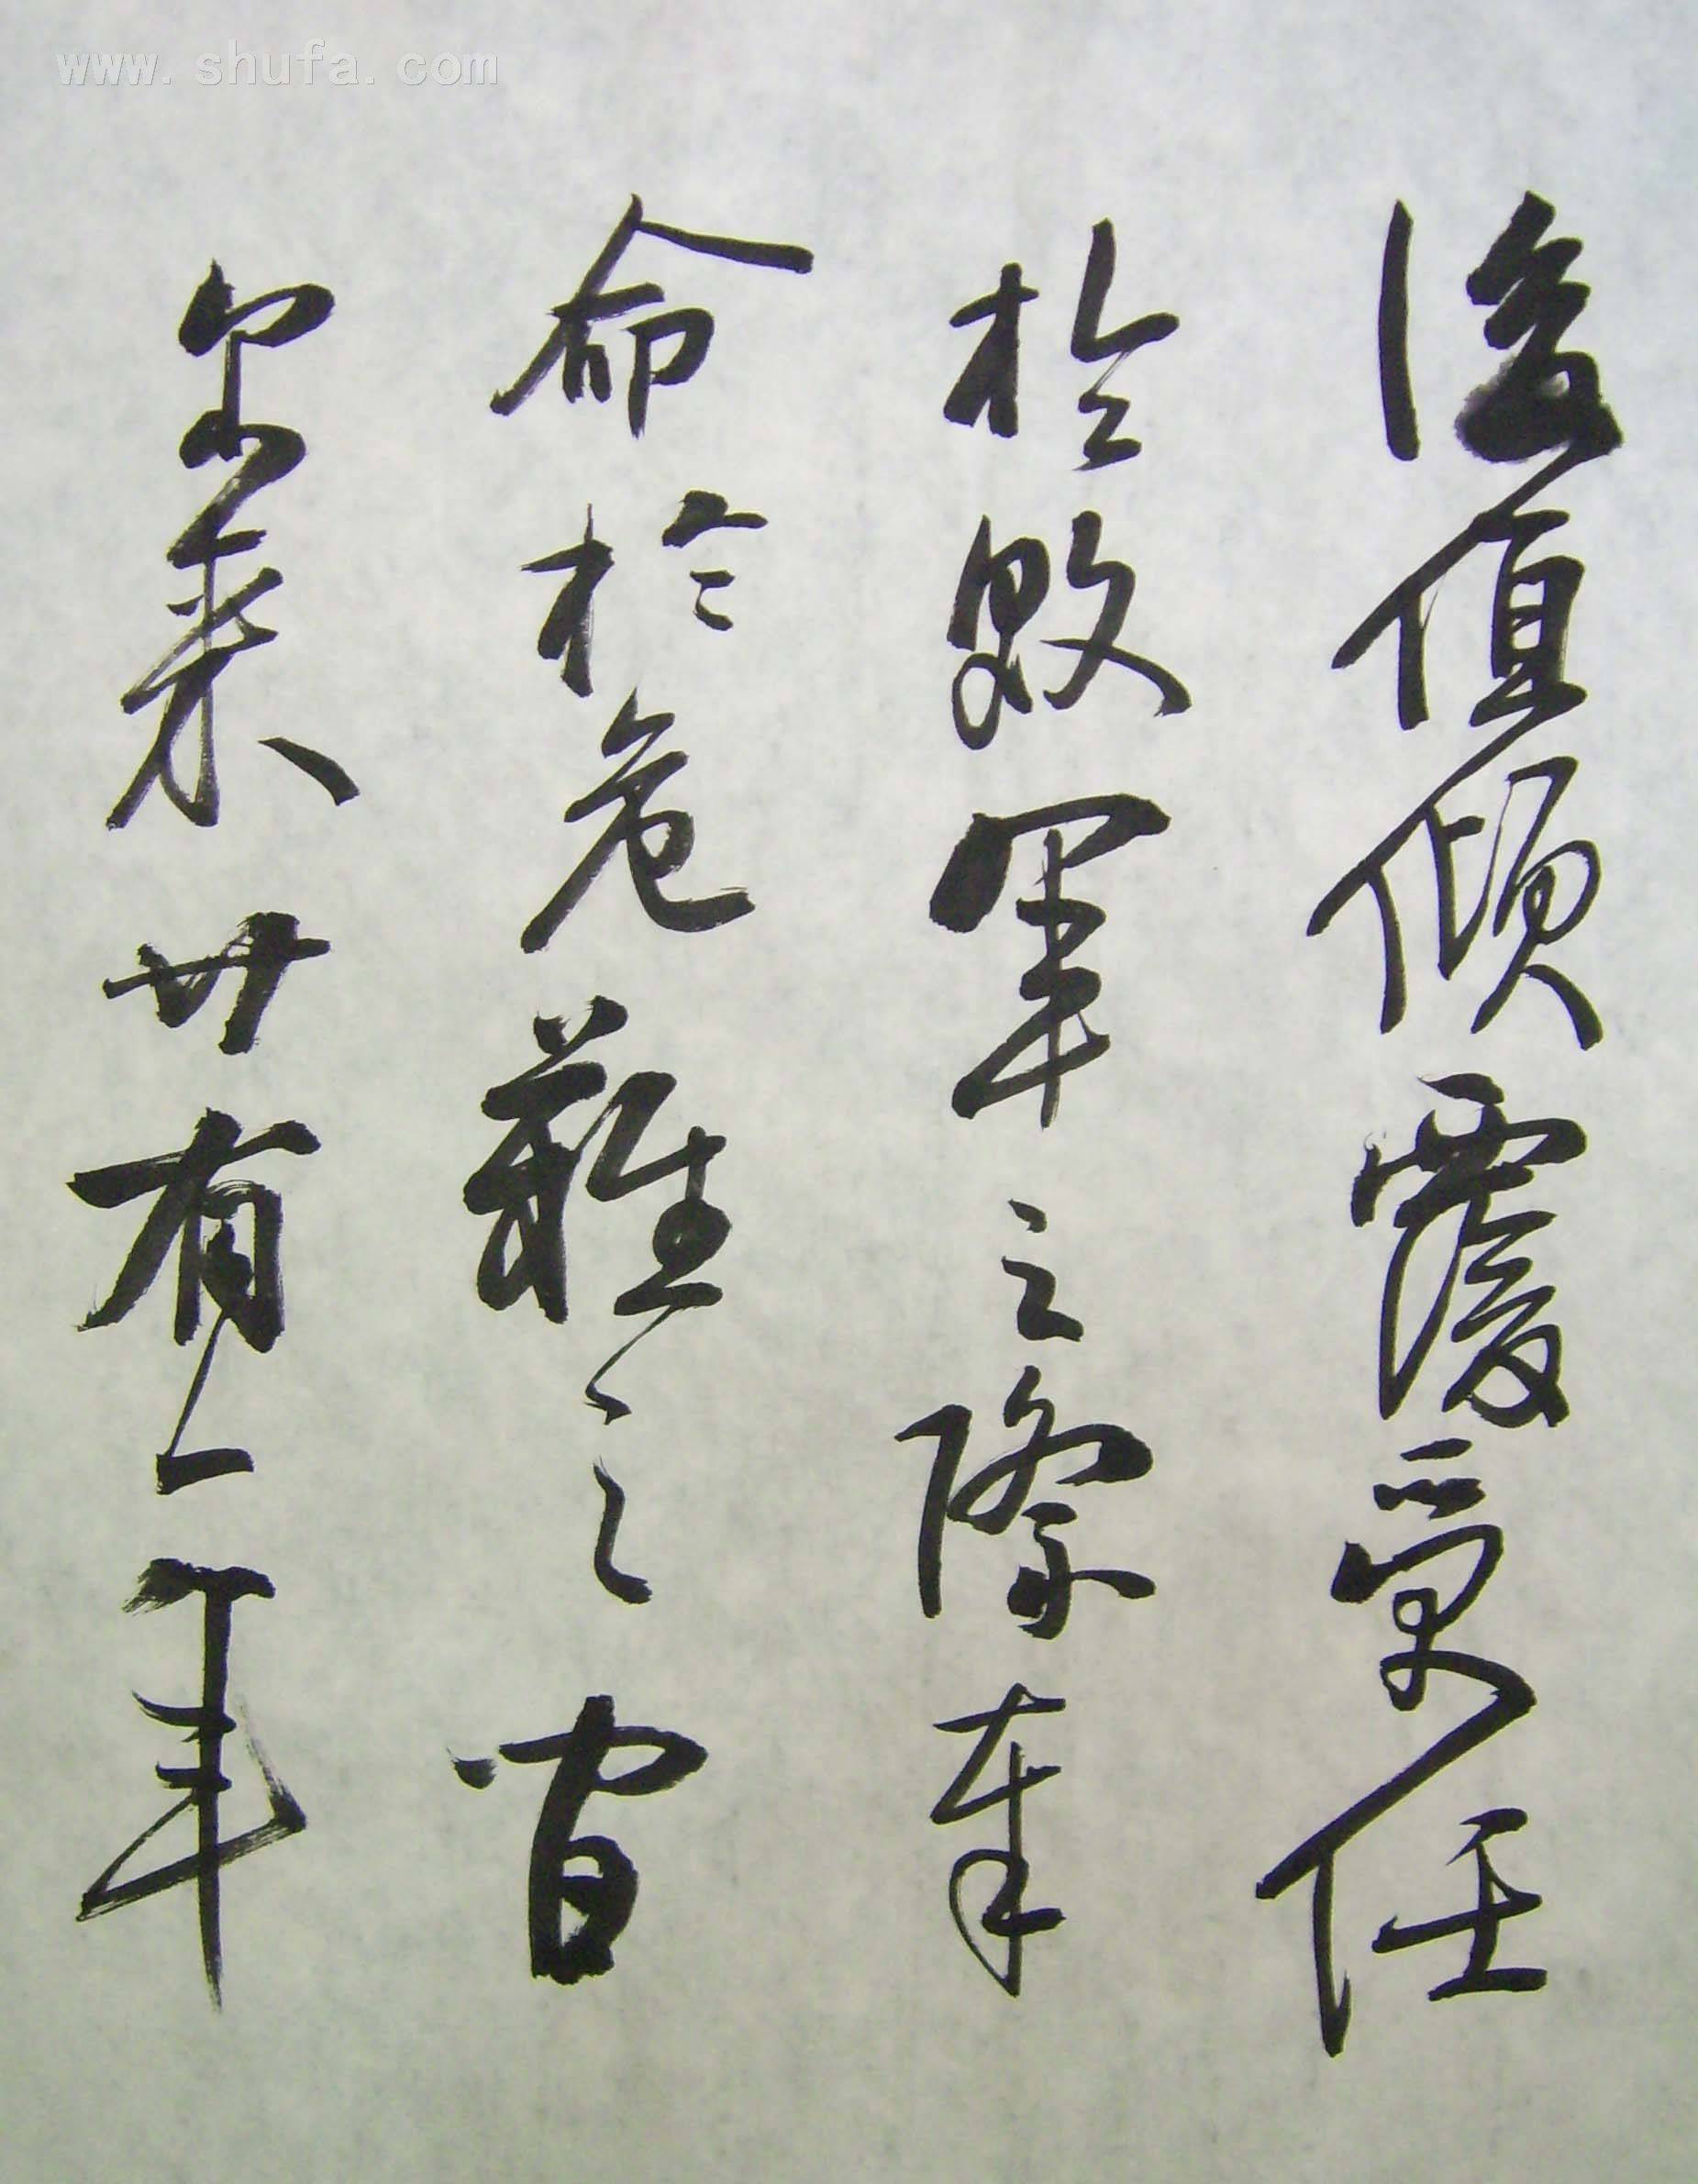 www.shufa.com
後值傾覆受任
於敗軍之際奉
命於危難之間
尔来廿有一年